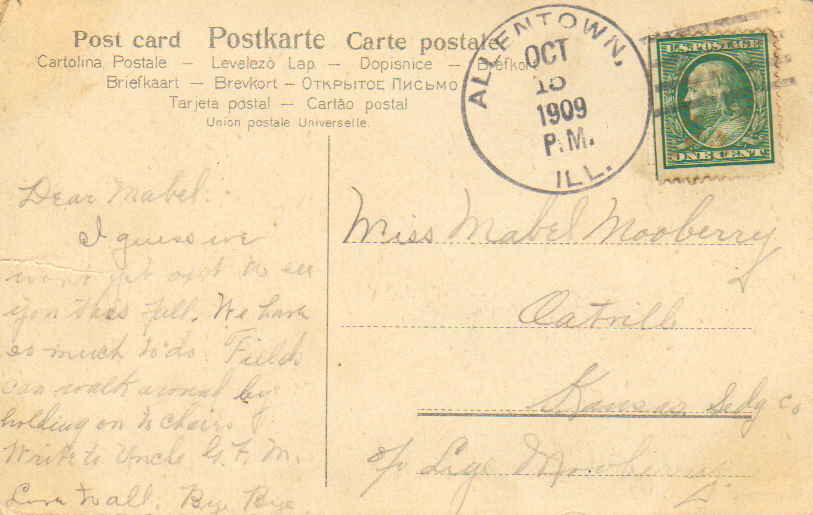 Post card Postkarte Carte postale
Cartolina Postale – Levelező Lap – Dopisnice – Brefkort
Briefkaart – Brevkort – Открытое Письмо
Tarjeta postal – Cartão postal
Union postale Universelle.
ALLENTOWN,
OCT
15
1909
P.M.
ILL.
U.S. POSTAGE
ONE CENT
Dear Mabel.
I guess we
won't get out to see
you this fall. We have
so much to do. Fields
can walk around by
holding on to chairs
Write to Uncle G. F. M.
Love to all. Bye Bye
Miss Mabel Mooberry
Oatville
Kansas Sedg Co
Lige Mooberry